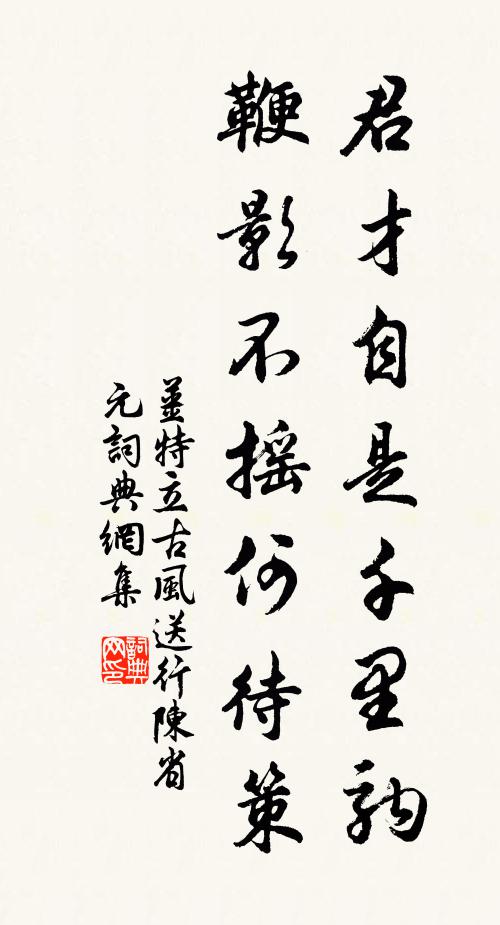 君才自是千里駒
鞭影不搖何待策
薑特立古風送行陳省
元詞典網集
詞典
网印